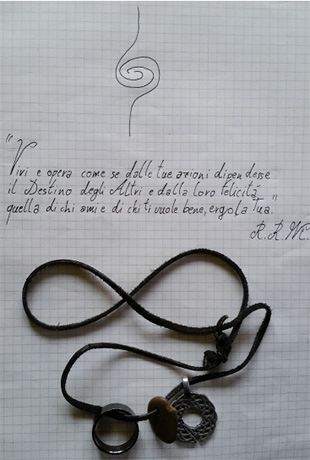 "Vivi e opera come se dalle tue azioni dipendesse
il Destino degli Altri e dalla loro felicità
quella di chi ami e di chi ti vuole bene, ergo la Tua."
R. R. M.